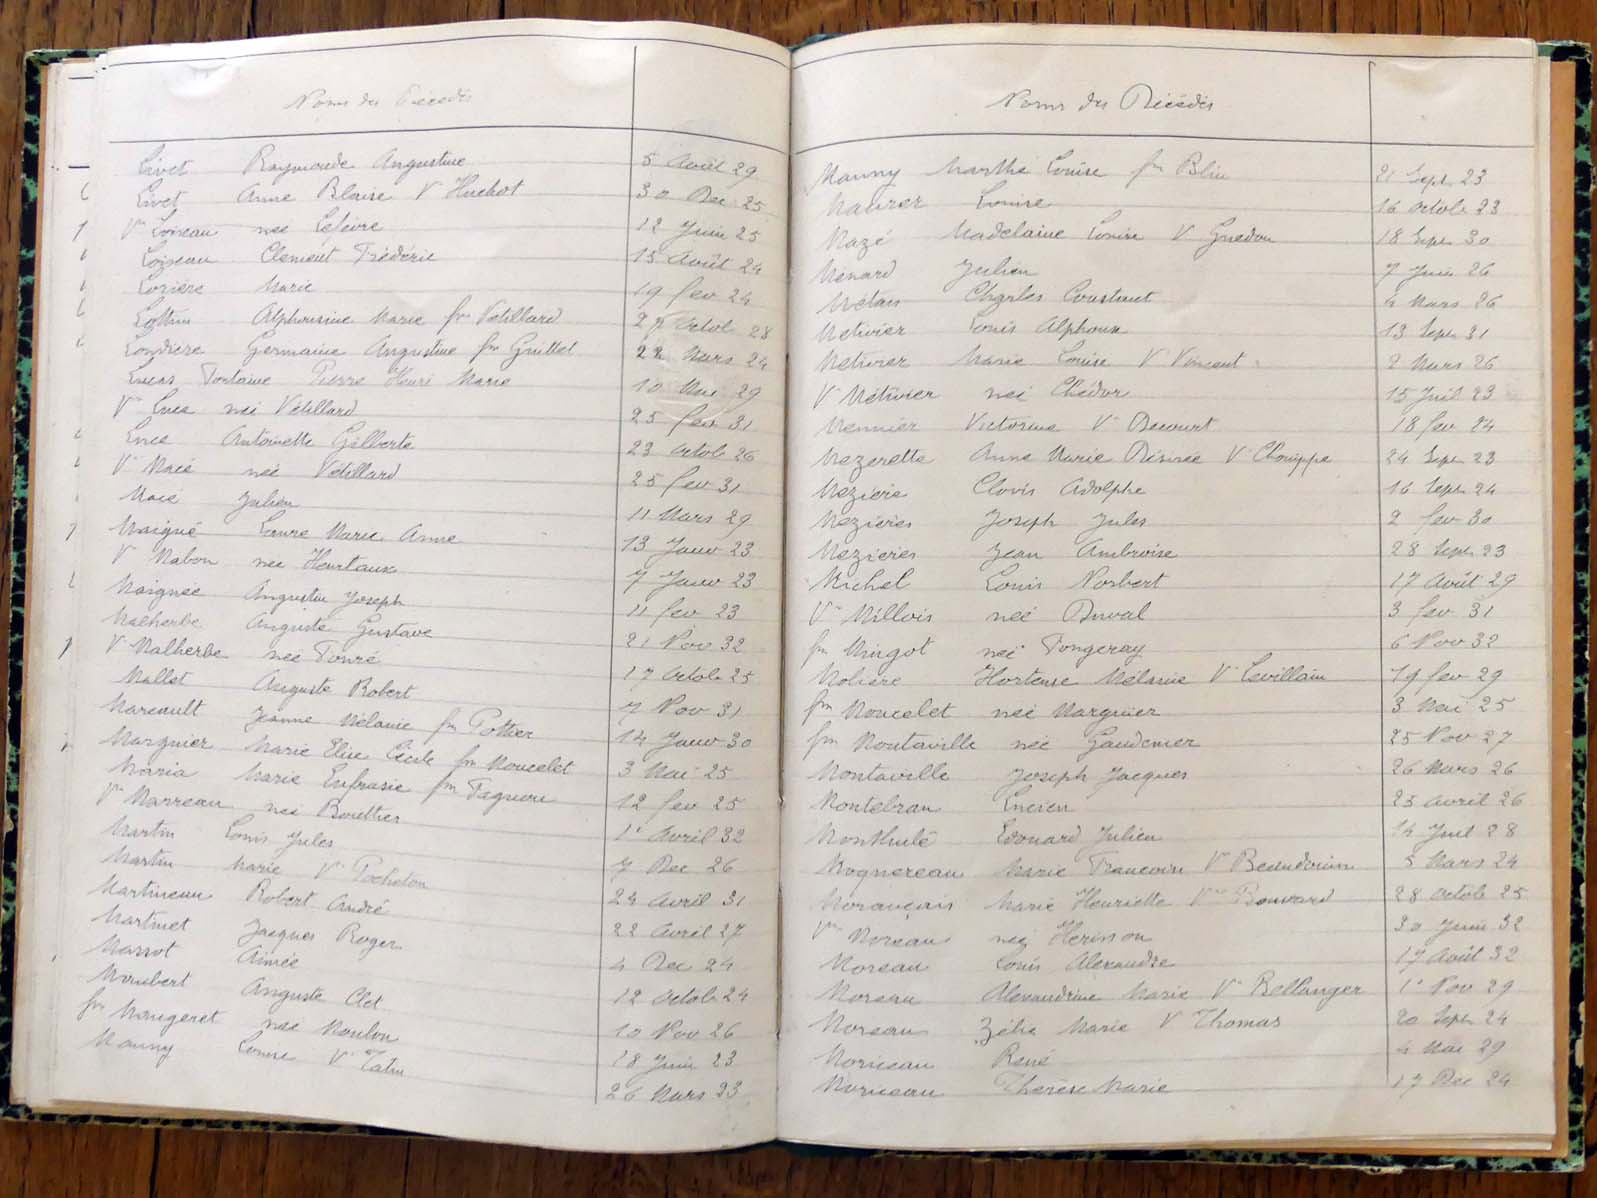 Noms des Décédés
Livet Raymonde Augustine 5 Avril 29
Livet Anne Blaise Vve Huchot 30 Dec 25
Vve Loiseau née Lefèvre 12 Juin 25
Loiseau Clément Frédéric 15 Août 24
Lorière Marie 19 fev 24
Lottin Alphonsine Marie fme Vétillard 27 Octob 28
Londière Germaine Augustine fme Guillet 22 Mars 24
Lucas Fontaine Pierre Henri Marie 10 Mai 29
Vve Luce née Vétillard 25 fev 31
Luce Antoinette Gilberte 23 Octob 26
Vve Macé née Vétillard 25 fev 31
Macé Julien 11 Mars 29
Maigné Laure Marie Anne 13 Janv 23
Vve Mabon née Heurtaux 7 Janv 23
Maignée Augustin Joseph 11 fev 23
Malherbe Auguste Gustave 21 Nov 32
Vve Malherbe née Touré 17 Octob 25
Mallet Auguste Robert 7 Nov 31
Mareault Jeanne Mélanie fme Pottier 14 Janv 30
Marguier Marie Elise Cécile fme Moucelet 3 Mai 25
Maria Marie Eufrasie fme 12 fev 25
Vve Marreau née Bouttier 1er Avril 32
Martin Louis Jules 7 Dec 26
Martin Marie Vve Pocheton 24 Avril 31
Martineau Robert André 22 Avril 27
Martinet Jacques Roger 4 Dec 24
Massot Aimée 12 Octob 24
Maubert Auguste Clet 10 Nov 26
fme Maugeret née Moulon 18 Juin 23
Mauny Louise Vve Tatin 26 Mars 23
Noms des Décédés
Mauny Marthe Louise fme Blin 21 Sept 23
Maurer Louise 16 Octob 23
Mazé Madelaine Louise Vve Guedon 18 Sept 30
Ménard Julien 7 Juin 26
Métais Charles Constant 4 Mars 26
Metivier Louis Alphonse 13 Sept 31
Metivier Marie Louise Vve Vincent 2 Mars 26
Vve Métivier née Chédor 15 Juil 23
Meunier Victorine Vve Decourt 18 fev 24
Mezerette Anne Marie Désirée Vve Chouippe 24 Sept 23
Mezière Clovis Adolphe 16 Sept 24
Mezières Joseph Jules 2 fev 30
Mezieres Jean Ambroise 28 Sept 23
Michel Louis Norbert 17 Août 29
Vve Millois née Duval 3 fev 31
fme Mingot née Tongeray 6 Nov 32
Moliere Hortense Mélanie Vve Levillain 19 fev 29
fme Moucelet née Marguier 3 Mai 25
fme Montaville née Gaudemer 25 Nov 27
Montaville Joseph Jacques 26 Mars 26
Montebran Lucien 25 Avril 26
Monthulé Edouard Julien 14 Juil 28
Moquereau Marie Françoise Vve Beaudouin 5 Mars 24
Morançais Marie Henriette Vve Bouvard 28 Octob 25
Vve Moreau née Herisson 30 Juin 32
Moreau Louis Alexandre 17 Août 32
Moreau Alexandrine Marie Vve Bellanger 1er Nov 29
Moreau Zélie Marie Vve Thomas 20 Sept 24
Moriceau René 4 Mai 29
Moriceau Thérèse Marie 17 Dec 24